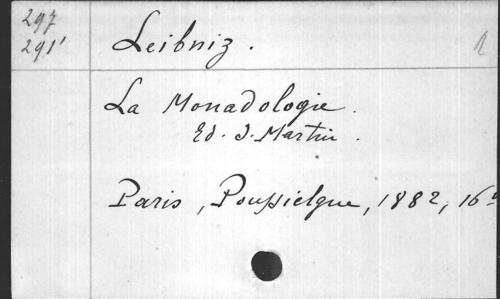 297
291'
Leibniz.
La Monadologie.
Ed. J. Martin.
Paris, Poussielgue, 1882, 16º